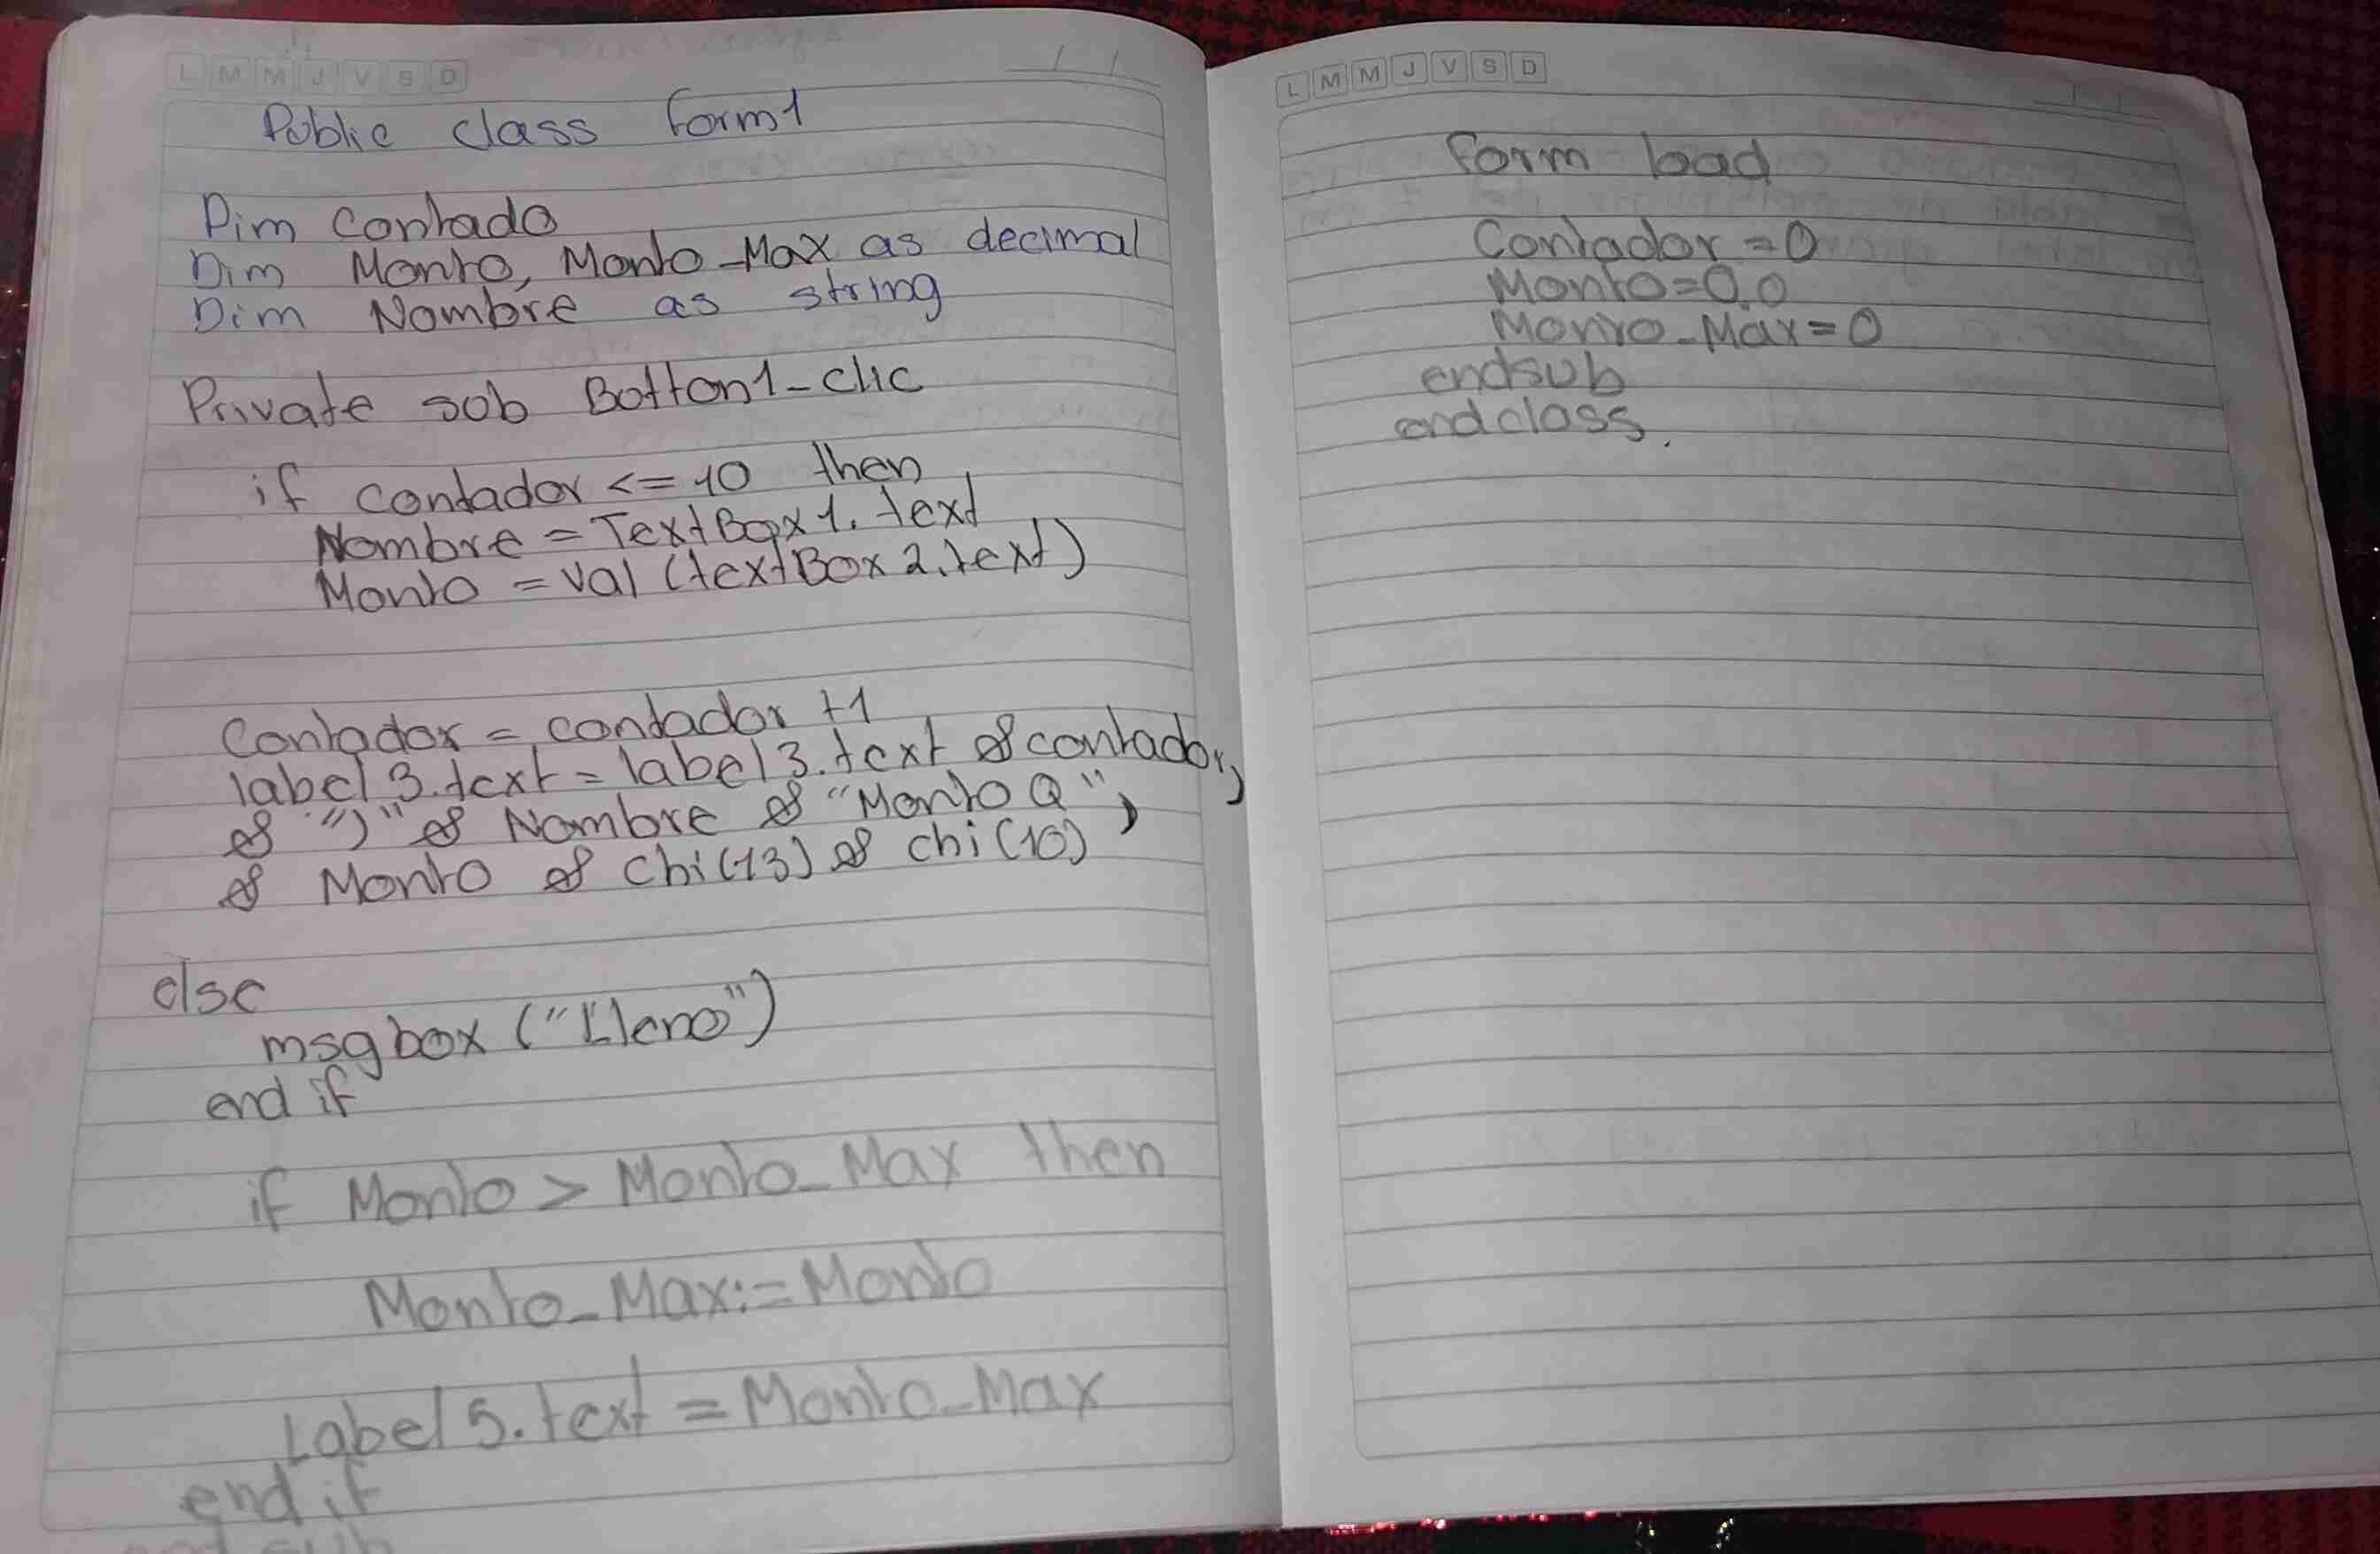 L M M J V S D
Public class form1
Dim Contado
Dim Monto, Monto_Max as decimal
Dim Nombre as string
Private sub Botton1_clic
if contador <= 10 then
Nombre = TextBox1.text
Monto = val (textBox2.text)
Contador = contador +1
label3.text = label3.text & contador,
& ")" & Nombre & "Monto Q",
& Monto & Chi(13) & chi(10)
else
msgbox ("Lleno")
end if
if Monto > Monto_Max then
Monto_Max:=Monto
Label5.text = Monto_Max
end if
end sub
L M M J V S D
form load
Contador = 0
Monto=0.0
Monto_Max=0
endsub
endclass.